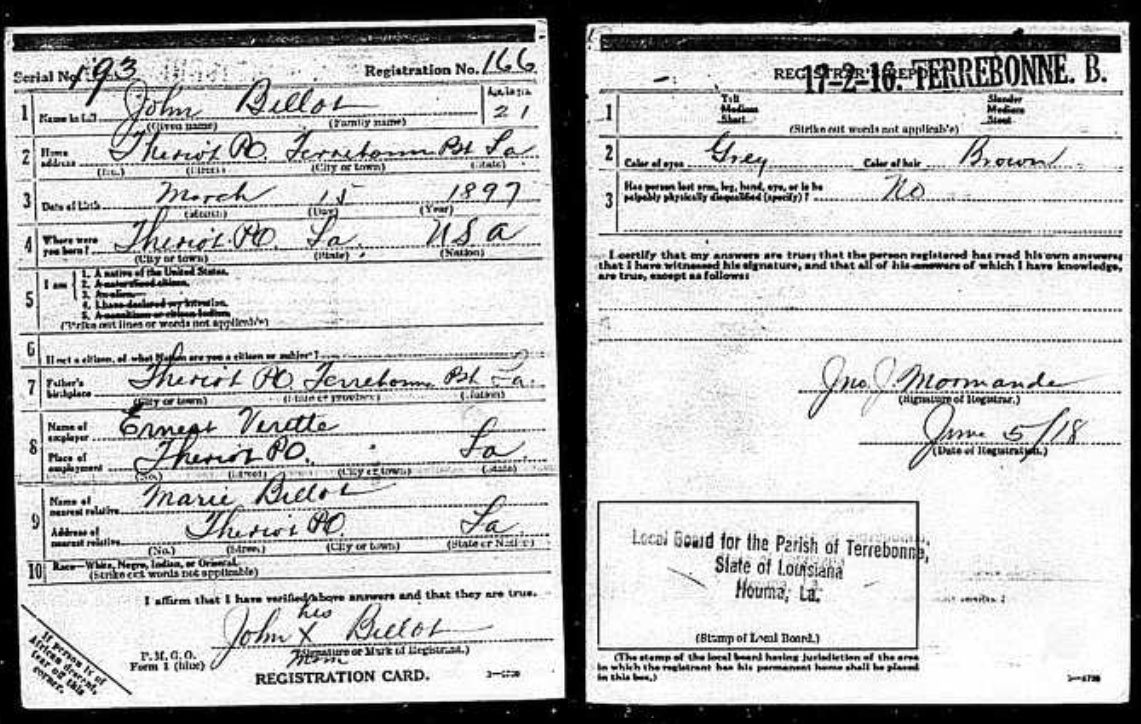 Serial No. 193 Registration No. 166
1 Name in full John Billot Age in yrs. 21
(Given name) (Family name)
2 Home address Theriot PO. Terrebonne Psh La
(No.) (Street) (City or town) (State)
3 Date of birth March 15 1897
(Month) (Day) (Year)
4 Where were you born? Theriot PO. La. USA
(City or town) (State) (Nation)
5 I am
1. A native of the United States.
2. A naturalized citizen.
3. An alien.
4. I have declared my intention.
5. A noncitizen or citizen Indian.
(Strike out lines or words not applicable)
6 If not a citizen, of what Nation are you a citizen or subject?
7 Father's birthplace Theriot PO. Terrebonne Psh La.
(City or town) (State or province) (Nation)
8 Name of employer Ernest Verette
Place of employment Theriot PO. La.
(No.) (Street) (City or town) (State)
9 Name of nearest relative Marie Billot
Address of nearest relative Theriot PO. La
(No.) (Street) (City or town) (State or Nation)
10 Race—White, Negro, Indian, or Oriental.
(Strike out words not applicable)
I affirm that I have verified above answers and that they are true.
his
John X Billot
P. M. G. O. (Signature or Mark of Registrant.)
Form 1 (blue)
REGISTRATION CARD.
If person is of
African descent,
tear off this
corner.
REGISTRAR'S REPORT 17-2-16. TERREBONNE. B.
1 Tall Slender
Medium Medium
Short Stout
(Strike out words not applicable)
2 Color of eyes Grey Color of hair Brown
3 Has person lost arm, leg, hand, eye, or is he
palpably physically disqualified (specify)? No
I certify that my answers are true; that the person registered has read his own answers;
that I have witnessed his signature, and that all of his answers of which I have knowledge,
are true, except as follows:
Jno. J. Mormande
(Signature of Registrar.)
June 5/18
(Date of Registration.)
Local Board for the Parish of Terrebonne,
State of Louisiana
Houma, La.
(Stamp of Local Board.)
(The stamp of the local board having jurisdiction of the area
in which the registrant has his permanent home shall be placed
in this box.)